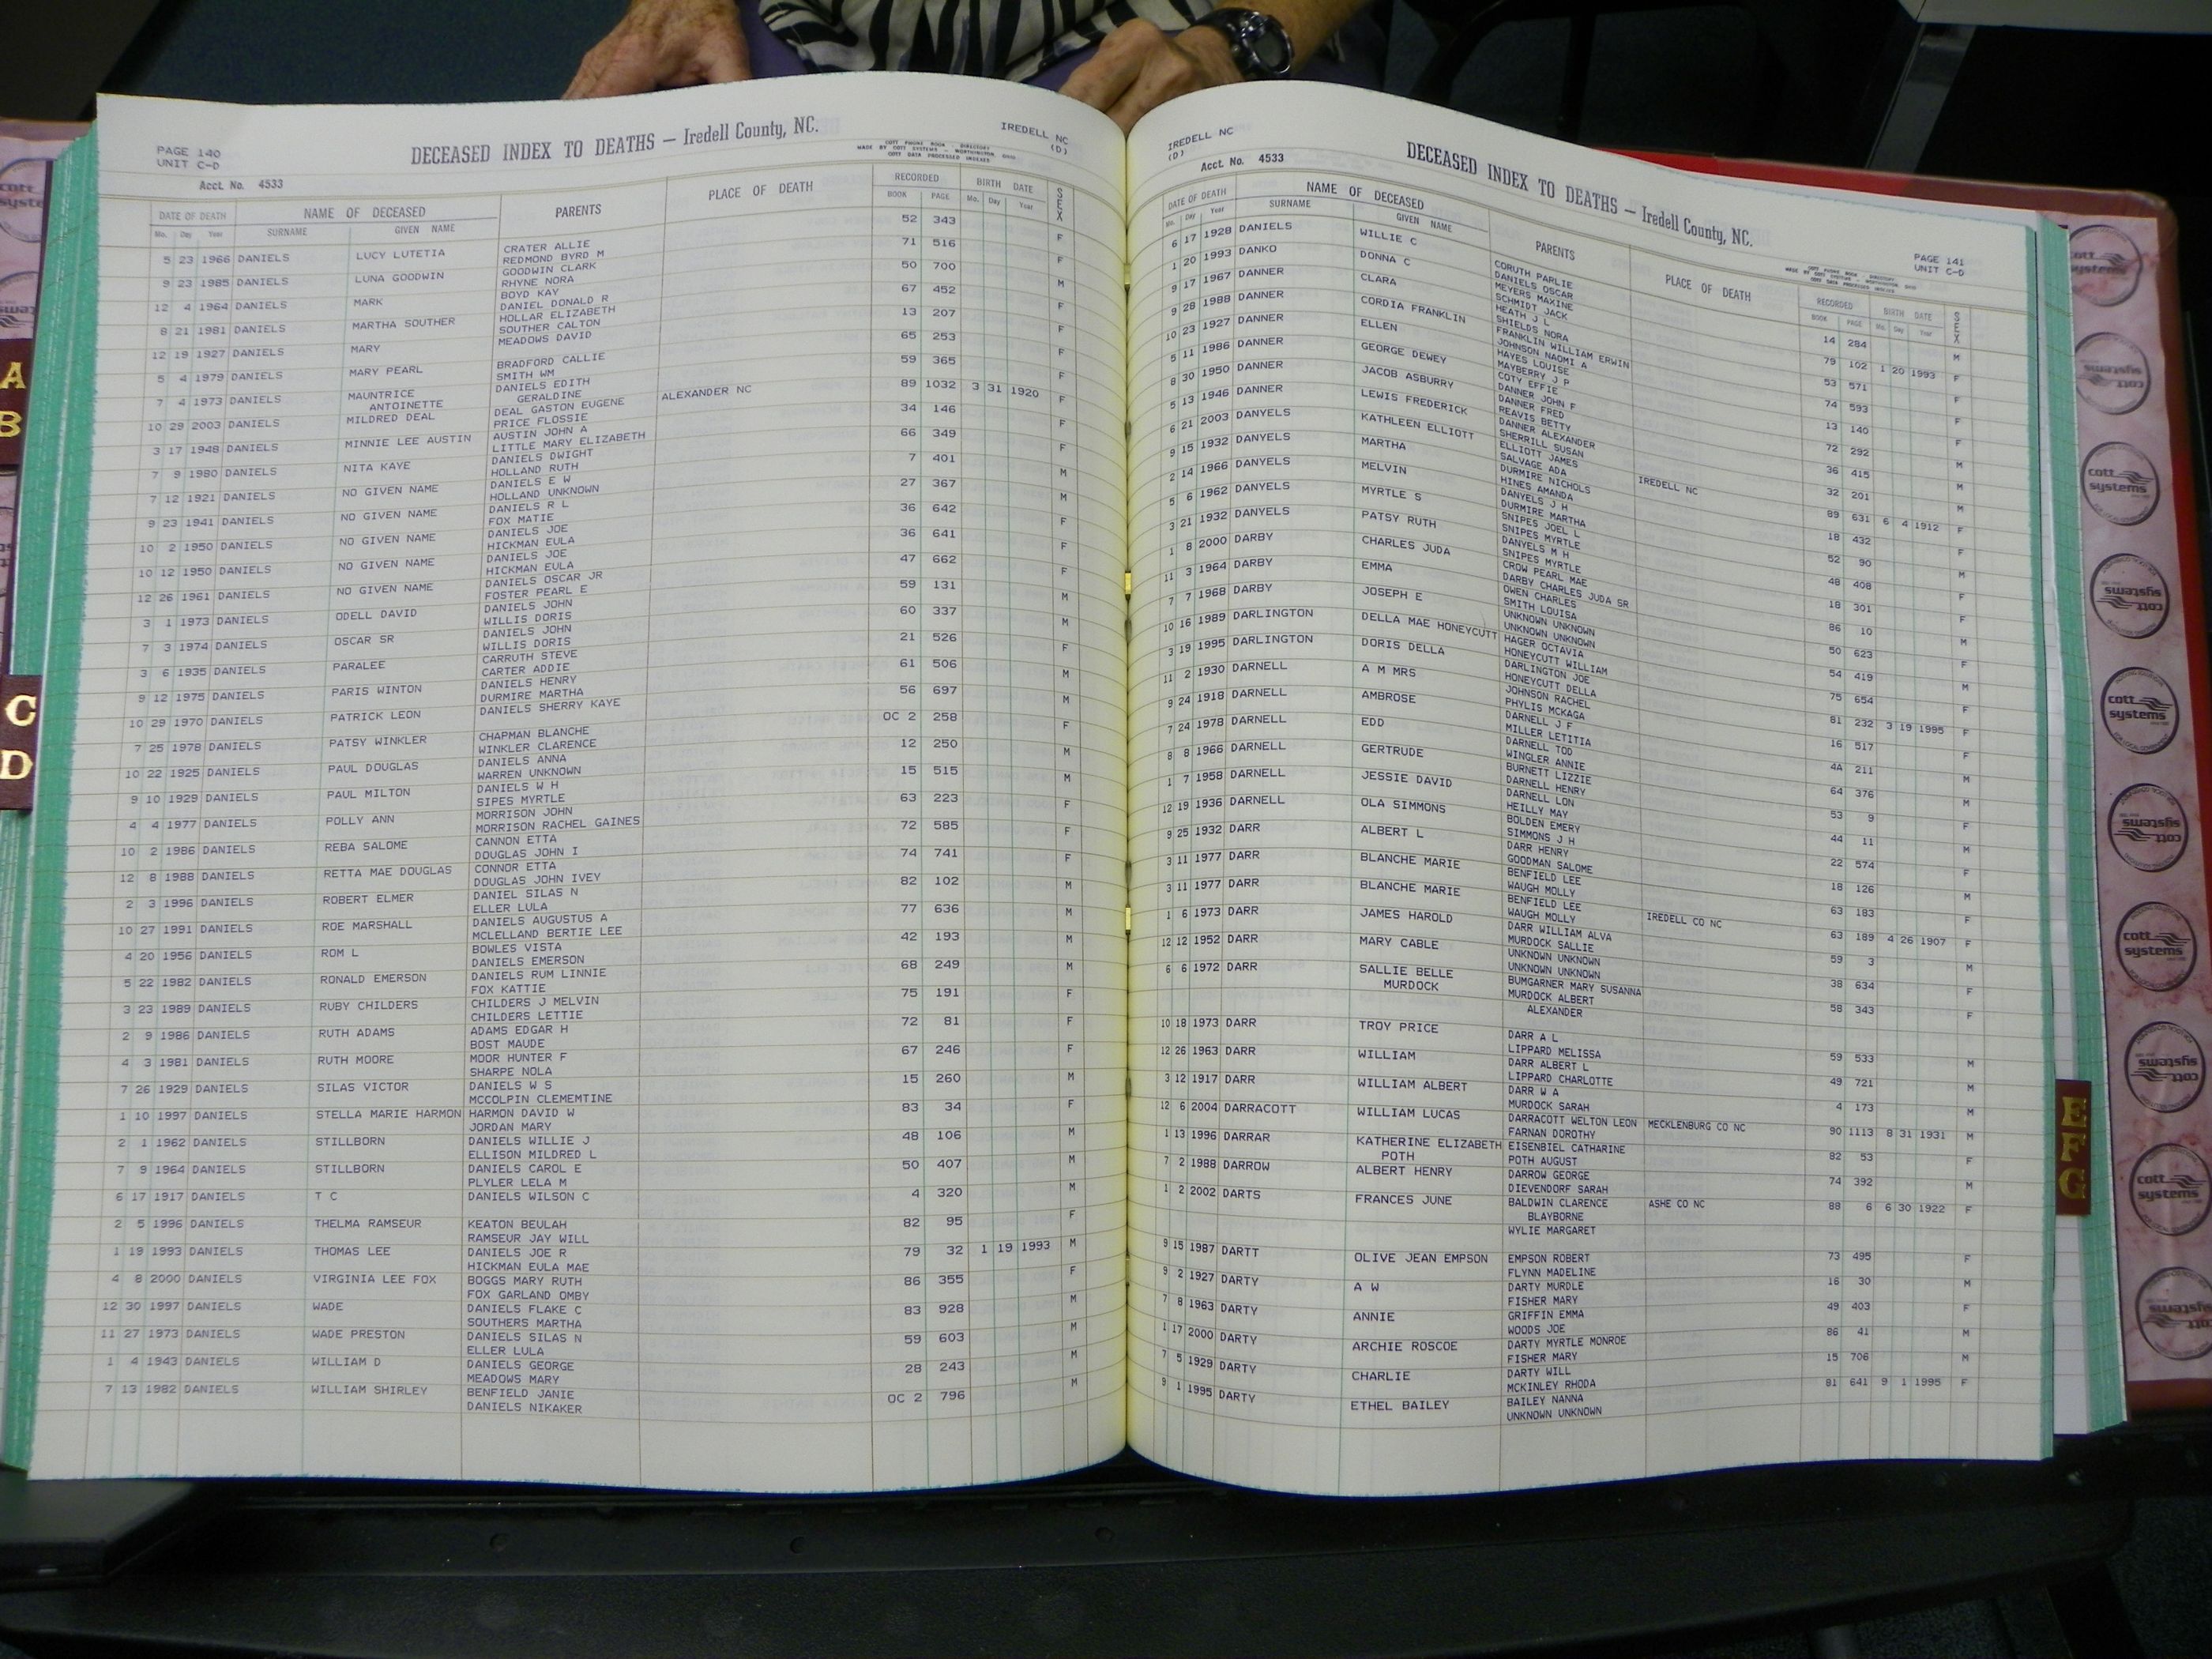 PAGE 140
UNIT C-D
DECEASED INDEX TO DEATHS — Iredell County, NC.
IREDELL NC
(D)
COTT PHONE BOOK - DIRECTORY
MADE BY COTT SYSTEMS - WORTHINGTON, OHIO
COTT DATA PROCESSED INDEXES
Acct. No. 4533
DATE OF DEATH NAME OF DECEASED PARENTS PLACE OF DEATH RECORDED BIRTH DATE SEX
Mo. Day Year SURNAME GIVEN NAME BOOK PAGE Mo. Day Year
5 23 1966 DANIELS LUCY LUTETIA CRATER ALLIE 52 343 F
REDMOND BYRD M
9 23 1985 DANIELS LUNA GOODWIN GOODWIN CLARK 71 516 F
RHYNE NORA
12 4 1964 DANIELS MARK BOYD KAY 50 700 M
DANIEL DONALD R
8 21 1981 DANIELS MARTHA SOUTHER HOLLAR ELIZABETH 67 452 F
SOUTHER CALTON
12 19 1927 DANIELS MARY MEADOWS DAVID 13 207 F
5 4 1979 DANIELS MARY PEARL BRADFORD CALLIE 65 253 F
SMITH WM
7 4 1973 DANIELS MAUNTRICE DANIELS EDITH 59 365
ANTOINETTE GERALDINE
10 29 2003 DANIELS MILDRED DEAL DEAL GASTON EUGENE ALEXANDER NC 89 1032 3 31 1920 F
PRICE FLOSSIE
3 17 1948 DANIELS MINNIE LEE AUSTIN AUSTIN JOHN A 34 146 F
LITTLE MARY ELIZABETH
7 9 1980 DANIELS NITA KAYE DANIELS DWIGHT 66 349 F
HOLLAND RUTH
7 12 1921 DANIELS NO GIVEN NAME DANIELS E W 7 401 M
HOLLAND UNKNOWN
9 23 1941 DANIELS NO GIVEN NAME DANIELS R L 27 367 M
FOX MATIE
10 2 1950 DANIELS NO GIVEN NAME DANIELS JOE 36 642 F
HICKMAN EULA
10 12 1950 DANIELS NO GIVEN NAME DANIELS JOE 36 641
HICKMAN EULA
12 26 1961 DANIELS NO GIVEN NAME DANIELS OSCAR JR 47 662 F
FOSTER PEARL E
3 1 1973 DANIELS ODELL DAVID DANIELS JOHN 59 131 M
WILLIS DORIS
7 3 1974 DANIELS OSCAR SR DANIELS JOHN 60 337 M
WILLIS DORIS
3 6 1935 DANIELS PARALEE CARRUTH STEVE 21 526 F
CARTER ADDIE
9 12 1975 DANIELS PARIS WINTON DANIELS HENRY 61 506 M
DURMIRE MARTHA
10 29 1970 DANIELS PATRICK LEON DANIELS SHERRY KAYE 56 697 M
7 25 1978 DANIELS PATSY WINKLER CHAPMAN BLANCHE OC 2 258 F
WINKLER CLARENCE
10 22 1925 DANIELS PAUL DOUGLAS DANIELS ANNA 12 250 M
WARREN UNKNOWN
9 10 1929 DANIELS PAUL MILTON DANIELS W H 15 515 M
SIPES MYRTLE
4 4 1977 DANIELS POLLY ANN MORRISON JOHN 63 223 F
MORRISON RACHEL GAINES
10 2 1986 DANIELS REBA SALOME CANNON ETTA 72 585 F
DOUGLAS JOHN I
12 8 1988 DANIELS RETTA MAE DOUGLAS CONNOR ETTA 74 741 F
DOUGLAS JOHN IVEY
2 3 1996 DANIELS ROBERT ELMER DANIEL SILAS N 82 102 M
ELLER LULA
10 27 1991 DANIELS ROE MARSHALL DANIELS AUGUSTUS A 77 636 M
MCLELLAND BERTIE LEE
4 20 1956 DANIELS ROM L BOWLES VISTA 42 193 M
DANIELS EMERSON
5 22 1982 DANIELS RONALD EMERSON DANIELS RUM LINNIE 68 249 M
FOX KATTIE
3 23 1989 DANIELS RUBY CHILDERS CHILDERS J MELVIN 75 191 F
CHILDERS LETTIE
2 9 1986 DANIELS RUTH ADAMS ADAMS EDGAR H 72 81 F
BOST MAUDE
4 3 1981 DANIELS RUTH MOORE MOOR HUNTER F 67 246 F
SHARPE NOLA
7 26 1929 DANIELS SILAS VICTOR DANIELS W S 15 260 M
MCCOLPIN CLEMEMTINE
1 10 1997 DANIELS STELLA MARIE HARMON HARMON DAVID W 83 34 F
JORDAN MARY
2 1 1962 DANIELS STILLBORN DANIELS WILLIE J 48 106 M
ELLISON MILDRED L
7 9 1964 DANIELS STILLBORN DANIELS CAROL E 50 407 M
PLYLER LELA M
6 17 1917 DANIELS T C DANIELS WILSON C 4 320 M
2 5 1996 DANIELS THELMA RAMSEUR KEATON BEULAH 82 95 F
RAMSEUR JAY WILL
1 19 1993 DANIELS THOMAS LEE DANIELS JOE R 79 32 1 19 1993 M
HICKMAN EULA MAE
4 8 2000 DANIELS VIRGINIA LEE FOX BOGGS MARY RUTH 86 355 F
FOX GARLAND OMBY
12 30 1997 DANIELS WADE DANIELS FLAKE C 83 928 M
SOUTHERS MARTHA
11 27 1973 DANIELS WADE PRESTON DANIELS SILAS N 59 603 M
ELLER LULA
1 4 1943 DANIELS WILLIAM D DANIELS GEORGE 28 243 M
MEADOWS MARY
7 13 1982 DANIELS WILLIAM SHIRLEY BENFIELD JANIE OC 2 796 M
DANIELS NIKAKER
IREDELL NC
(D)
DECEASED INDEX TO DEATHS — Iredell County, NC.
PAGE 141
UNIT C-D
Acct. No. 4533
DATE OF DEATH NAME OF DECEASED PARENTS PLACE OF DEATH RECORDED BIRTH DATE SEX
Mo. Day Year SURNAME GIVEN NAME BOOK PAGE Mo. Day Year
6 17 1928 DANIELS WILLIE C CORUTH PARLIE 14 284 M
DANIELS OSCAR
1 20 1993 DANKO DONNA C MEYERS MAXINE 79 102 1 20 1993 F
SCHMIDT JACK
9 17 1967 DANNER CLARA HEATH J L 53 571 F
SHIELDS NORA
9 28 1988 DANNER CORDIA FRANKLIN FRANKLIN WILLIAM ERWIN 74 593 F
JOHNSON NAOMI A
10 23 1927 DANNER ELLEN HAYES LOUISE 13 140 F
MAYBERRY J P
5 11 1986 DANNER GEORGE DEWEY COTY EFFIE 72 292 M
DANNER JOHN F
8 30 1950 DANNER JACOB ASBURRY DANNER FRED 36 415 M
REAVIS BETTY
5 13 1946 DANNER LEWIS FREDERICK DANNER ALEXANDER 32 201 M
SHERRILL SUSAN
6 21 2003 DANYELS KATHLEEN ELLIOTT ELLIOTT JAMES IREDELL NC 89 631 6 4 1912 F
SALVAGE ADA
9 15 1932 DANYELS MARTHA DURMIRE NICHOLS 18 432 F
HINES AMANDA
2 14 1966 DANYELS MELVIN DANYELS J H 52 90 M
DURMIRE MARTHA
5 6 1962 DANYELS MYRTLE S SNIPES JOEL L 48 408 F
SNIPES MYRTLE
3 21 1932 DANYELS PATSY RUTH DANYELS M H 18 301 F
SNIPES MYRTLE
1 8 2000 DARBY CHARLES JUDA CROW PEARL MAE 86 10 M
DARBY CHARLES JUDA SR
11 3 1964 DARBY EMMA OWEN CHARLES 50 623 F
SMITH LOUISA
7 7 1968 DARBY JOSEPH E UNKNOWN UNKNOWN 54 419 M
UNKNOWN UNKNOWN
10 16 1989 DARLINGTON DELLA MAE HONEYCUTT HAGER OCTAVIA 75 654 F
HONEYCUTT WILLIAM
3 19 1995 DARLINGTON DORIS DELLA DARLINGTON JOE 81 232 3 19 1995 F
HONEYCUTT DELLA
11 2 1930 DARNELL A M MRS JOHNSON RACHEL 16 517 F
PHYLIS MCKAGA
9 24 1918 DARNELL AMBROSE DARNELL J F 4A 211 M
MILLER LETITIA
7 24 1978 DARNELL EDD DARNELL TOD 64 376 M
WINGLER ANNIE
8 8 1966 DARNELL GERTRUDE BURNETT LIZZIE 53 9 F
DARNELL HENRY
1 7 1958 DARNELL JESSIE DAVID DARNELL LON 44 11 M
HEILLY MAY
12 19 1936 DARNELL OLA SIMMONS BOLDEN EMERY 22 574 F
SIMMONS J H
9 25 1932 DARR ALBERT L DARR HENRY 18 126 M
GOODMAN SALOME
3 11 1977 DARR BLANCHE MARIE BENFIELD LEE 63 183 F
WAUGH MOLLY
3 11 1977 DARR BLANCHE MARIE BENFIELD LEE IREDELL CO NC 63 189 4 26 1907 F
WAUGH MOLLY
1 6 1973 DARR JAMES HAROLD DARR WILLIAM ALVA 59 3 M
MURDOCK SALLIE
12 12 1952 DARR MARY CABLE UNKNOWN UNKNOWN 38 634 F
UNKNOWN UNKNOWN
6 6 1972 DARR SALLIE BELLE BUMGARNER MARY SUSANNA 58 343 F
MURDOCK MURDOCK ALBERT
ALEXANDER
10 18 1973 DARR TROY PRICE DARR A L 59 533 M
LIPPARD MELISSA
12 26 1963 DARR WILLIAM DARR ALBERT L 49 721 M
LIPPARD CHARLOTTE
3 12 1917 DARR WILLIAM ALBERT DARR W A 4 173 M
MURDOCK SARAH
12 6 2004 DARRACOTT WILLIAM LUCAS DARRACOTT WELTON LEON MECKLENBURG CO NC 90 1113 8 31 1931 M
FARNAN DOROTHY
1 13 1996 DARRAR KATHERINE ELIZABETH EISENBIEL CATHARINE 82 53 F
POTH POTH AUGUST
7 2 1988 DARROW ALBERT HENRY DARROW GEORGE 74 392 M
DIEVENDORF SARAH
1 2 2002 DARTS FRANCES JUNE BALDWIN CLARENCE ASHE CO NC 88 6 6 30 1922 F
BLAYBORNE
WYLIE MARGARET
9 15 1987 DARTT OLIVE JEAN EMPSON EMPSON ROBERT 73 495 F
FLYNN MADELINE
9 2 1927 DARTY A W DARTY MURDLE 16 30 M
FISHER MARY
7 8 1963 DARTY ANNIE GRIFFIN EMMA 49 403 F
WOODS JOE
1 17 2000 DARTY ARCHIE ROSCOE DARTY MYRTLE MONROE 86 41 M
FISHER MARY
7 5 1929 DARTY CHARLIE DARTY WILL 15 706 M
MCKINLEY RHODA
9 1 1995 DARTY ETHEL BAILEY BAILEY NANNA 81 641 9 1 1995 F
UNKNOWN UNKNOWN
A
B
C
D
E
F
G
cott systems